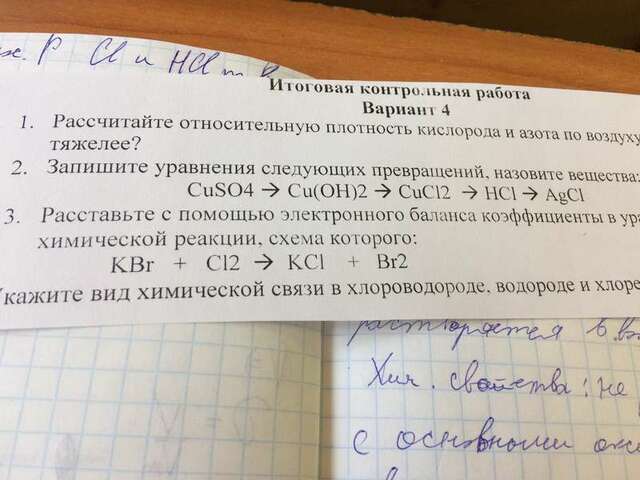 P Cl и HCl
Итоговая контрольная работа
Вариант 4
1. Рассчитайте относительную плотность кислорода и азота по воздуху
тяжелее?
2. Запишите уравнения следующих превращений, назовите вещества:
CuSO4 → Cu(OH)2 → CuCl2 → HCl → AgCl
3. Расставьте с помощью электронного баланса коэффициенты в ура
химической реакции, схема которого:
KBr + Cl2 → KCl + Br2
Укажите вид химической связи в хлороводороде, водороде и хлоре
растворяется в
Хим. свойства: не
с основными окс